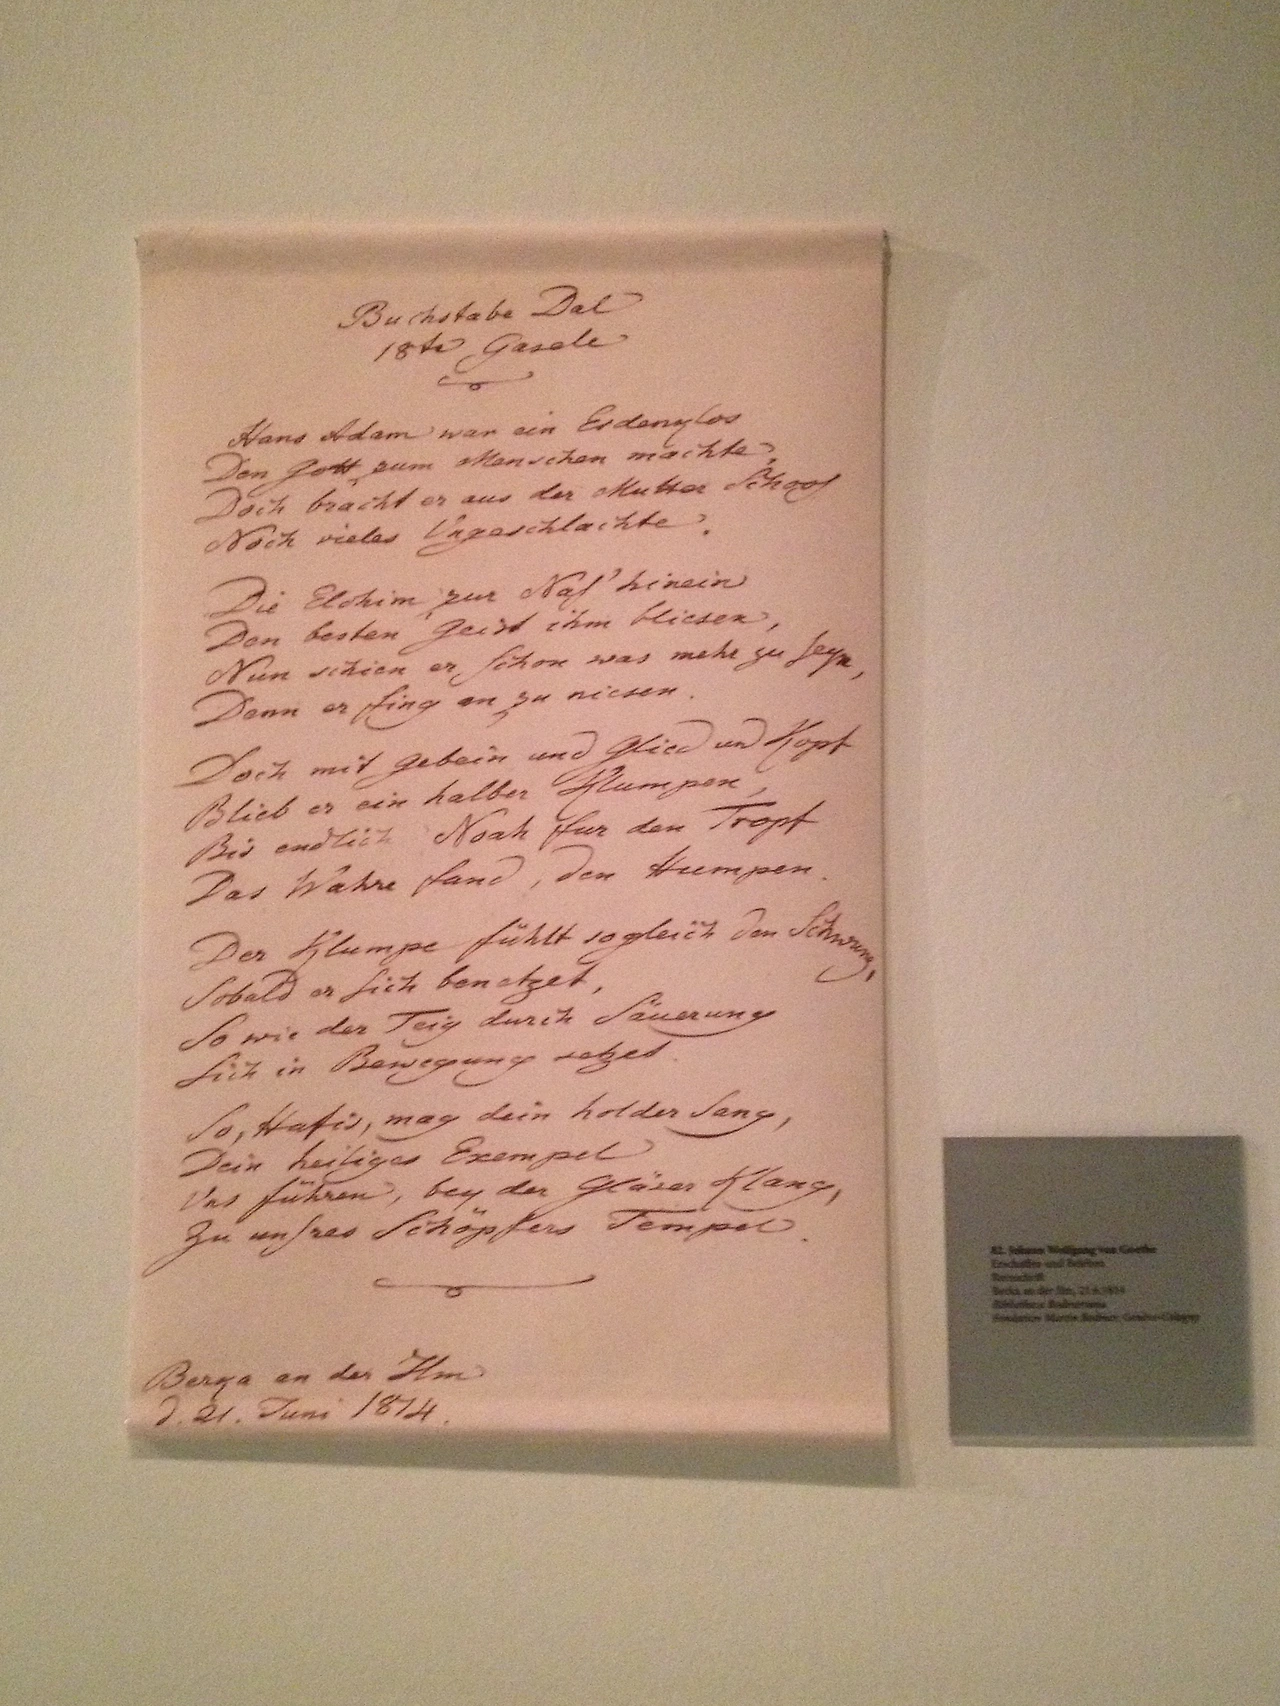 Buchstabe Dal
18te Gasele
Hans Adam war ein Erdenklos
Den Gott zum Menschen machte,
Doch bracht er aus der Mutter Schoos
Noch vieles Ungeschlachte.
Die Elohim zur Nas' hinein
Den besten Geist ihm bliesen,
Nun schien er schon was mehr zu seyn,
Denn er fing an zu niesen.
Doch mit Gebein und Glied und Kopf
Blieb er ein halber Klumpen,
Bis endlich Noah fur den Tropf
Das Wahre fand, den Humpen.
Der Klumpe fühlt sogleich den Schwung,
Sobald er sich benetzet,
So wie der Teig durch Säuerung
Sich in Bewegung setzet.
So, Hafis, mag dein holder Sang,
Dein heiliges Exempel
Uns führen, bey der Gläser Klang,
Zu unsres Schöpfers Tempel.
Berka an der Ilm
d. 21. Juni 1814.
82. Johann Wolfgang von Goethe
Erschaffen und Beleben
Reinschrift
Berka an der Ilm, 21.6.1814
Bibliotheca Bodmeriana
Fondation Martin Bodmer, Genève-Cologny